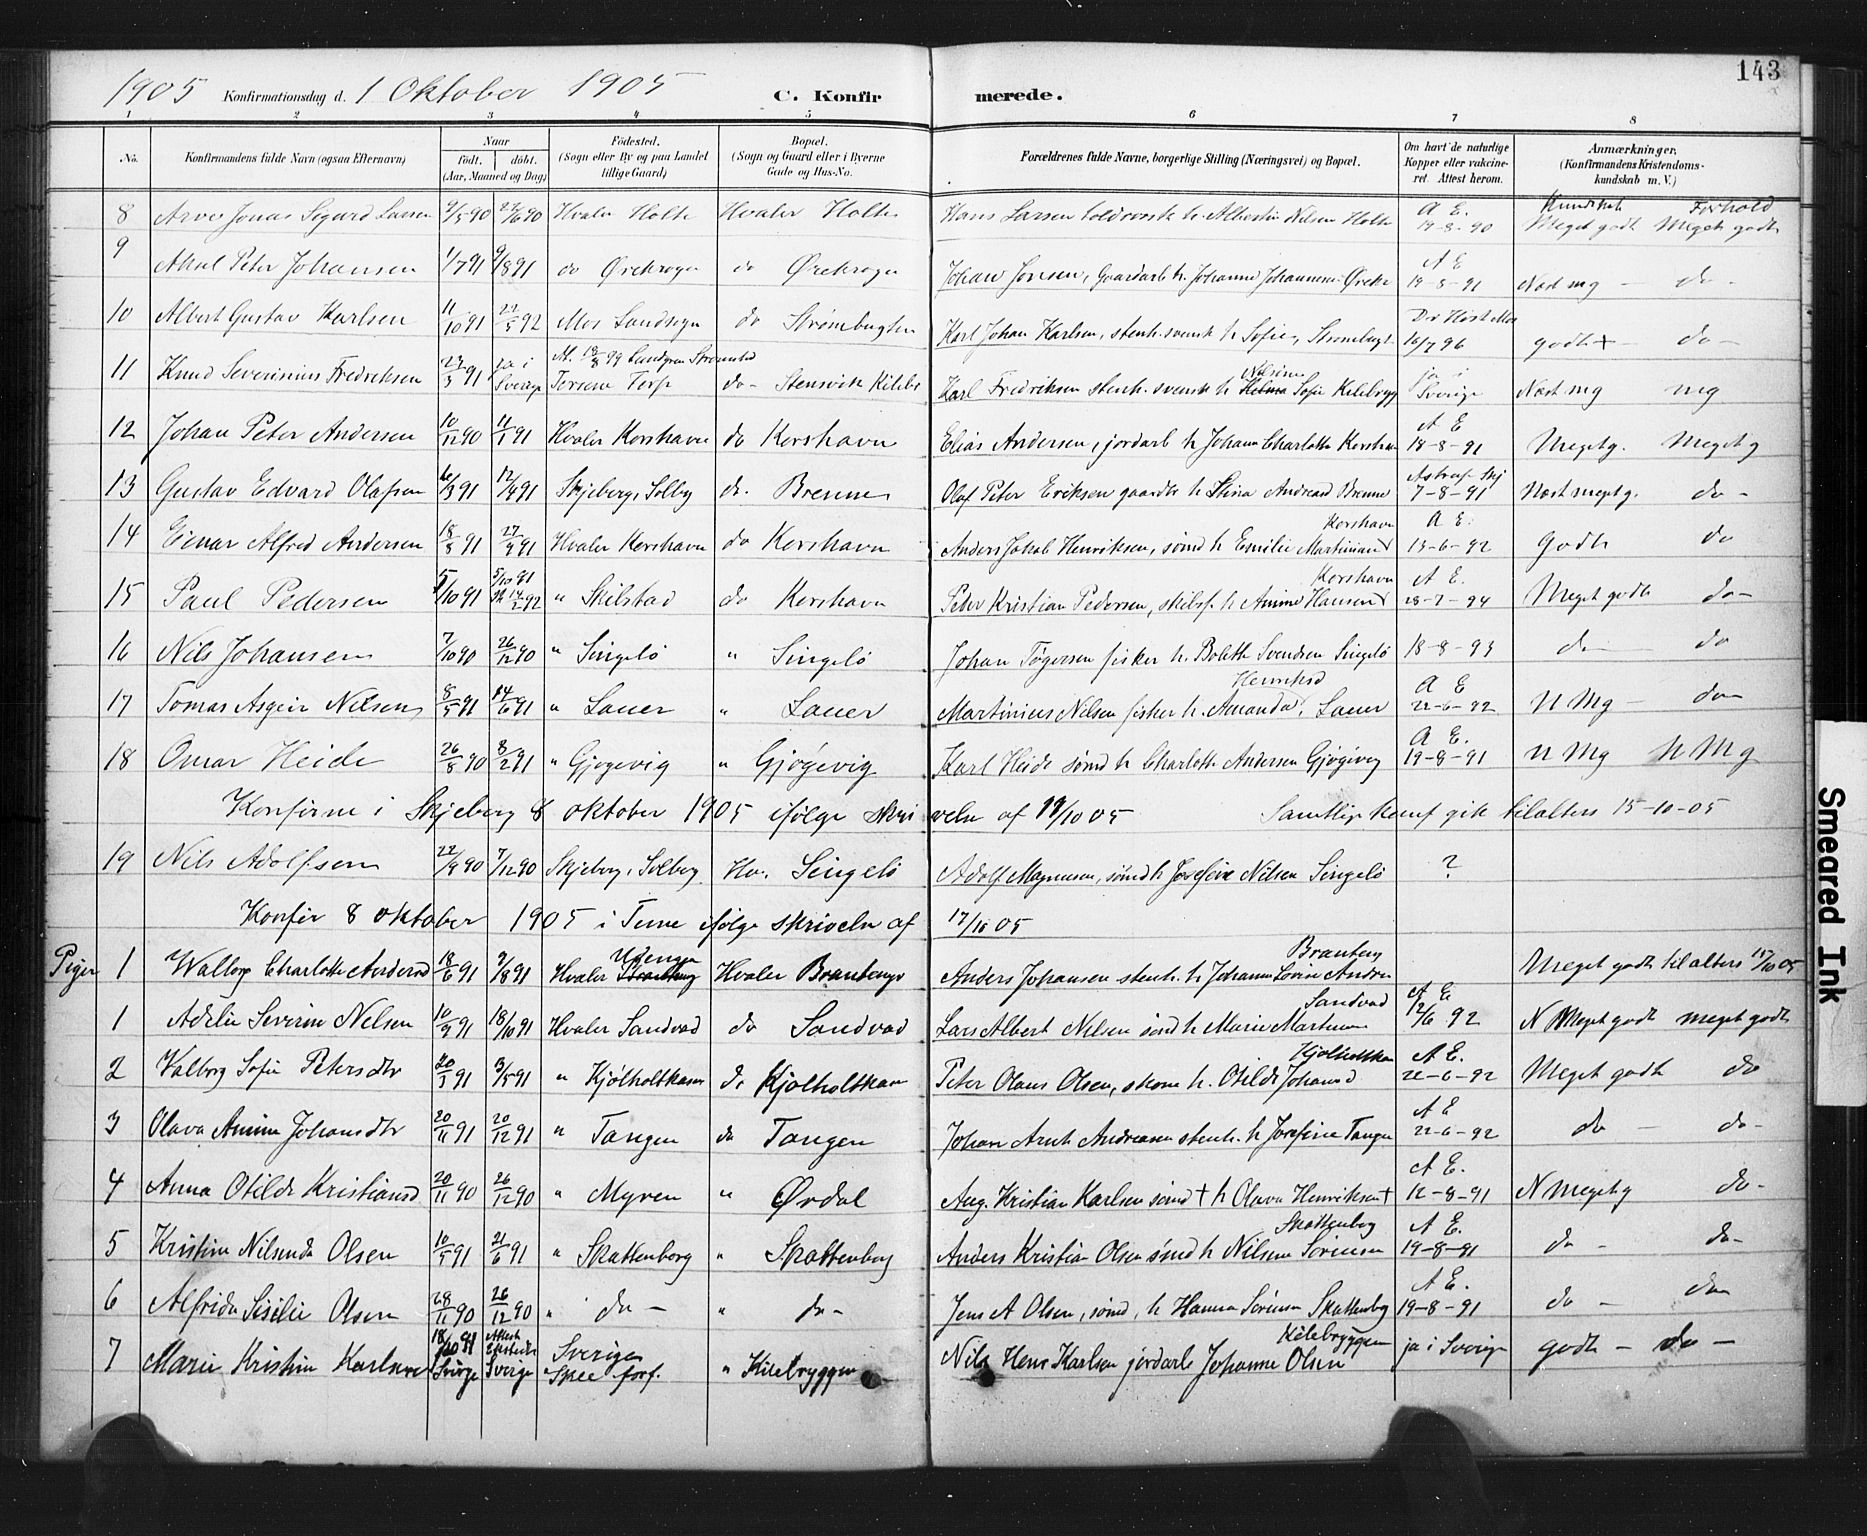 143
1905 Konfirmationsdag d. 1 Oktober 1905 C. Konfirmerede.
1 2 3 4 5 6 7 8
No. Konfirmandens fulde Navn (ogsaa Efternavn) Naar født. døbt. (Aar, Maaned og Dag) Fødested. (Sogn eller By og paa Landet tillige Gaard) Bopæl. (Sogn og Gaard eller i Byerne Gade og Hus-No. Forældrenes fulde Navne, borgerlige Stilling (Næringsvei) og Bopæl. Om havt de naturlige Kopper eller vakcineret. Attest herom. Anmærkninger, (Konfirmandens Kristendomskundskab m. V.)
Kundskab Forhold
8 Arve Jonas Sigurd Larsen 9/5 90 27/6 90 Hvaler Holte Hvaler Holte Hans Larsen h. Albertine Nilsen Holte A E. 19-8-90 Meget godt Meget godt
9 Aksel Peter Johansen 1/7 91 9/8 91 do Ørekrogen do Ørekrogen Johan Jonsen, Gaardarb h. Johanne Johannesen Øreke A E 19-8-91 Næst mg - do -
10 Albert Gustav Karlsen 11/10 91 22/5 92 Mos Landsogn do Strømbugten Karl Johan Karlsen, stenh. svensk h Sofie, Strømbugt 16/7 96 godt + - do -
11 Knud Severinius Fredriksen 23/3 91 ja i Sverige Torsem Torp do - Stensvik Kilebr Karl Fredriksen stenh. svensk h Nilsine Sofie Kilebrygg ja i Sverige Næst mg mg
12 Johan Peter Andersen 10/12 90 11/1 91 Hvaler Korshavn do Korshavn Elias Andersen, jordarb h Johanne Charlotte Korshavn A E 18-8-91 Meget g. Meget g
13 Gustav Edvard Olafsen 10/3 91 12/4 91 Skjeberg, Solberg do. Brenne Olaf Peter Eriksen gaardb h Stina Andreasd Brenne 7-8-91 Næst meget g. do -
14 Einar Alfred Andersen 18/8 91 27/9 91 Hvaler Korshavn do Korshavn Anders Jakob Henriksen, sømd h Emilie Martiniand Korshavn A E. 13-6-92 Godt do
15 Paul Pedersen 5/10 91 5/10 91 14/2 92 " Skilstad do Korshavn Peter Kristian Pedersen, skibsf. h Amine Hansend Korshavn A E. 28-7-94 Meget godt do -
16 Nils Johansen 7/10 90 26/12 90 " Singelö " Singelö Johan Tøgersen fisker h. Boleth Svendsen Singelö 18-8-93 do - do
17 Tomas Asgeir Nilsen 8/5 91 14/6 91 " Lauer " Lauer Martinius Nilsen fisker h. Amanda Henriksd, Lauer A E 22-6-92 N Mg - do -
18 Omar Heide 26/8 90 8/2 91 " Gjøgevig " Gjøgevig Karl Heide sømd h Charlotte Andersen Gjøgivig A E. 19-8-91 N Mg N Mg
Konfirme i Skjeberg 8 oktober 1905 ifølge skrivelse af 19/10 05 Samtlige konf gik til alters 15-10-05
19 Nils Adolfsen 22/9 90 7/12 90 Skjeberg, Solberg Hv. Singelö Adolf Magnusen, sømd h Josefine Nilsen Singelö ?
Konfir 8 oktober 1905 i Tune ifølge skrivelse af 17/10 05
Piger 1 Walborg Charlotte Andersd 18/6 91 9/8 91 Hvaler Utengen Hvaler Brantenge Anders Johansen stenh. h Johanne Lovise Andre Branteng Meget godt til alters 15/10 05
1 Adelie Severine Nelsen 10/9 91 18/10 91 Hvaler Sandvad do Sandvad Lars Albert Nelsen sømd h Marie Martinsen Sandvad A E. 12/6 92 N Meget godt meget godt
2 Valborg Sofie Petersdtr 20/3 91 3/5 91 " Kjølholtkasen do Kjølholtkasen Peter Olaus Olsen, skom h. Otilde Johansd Kjølholtkasen A E. 22-6-92 Meget godt do
3 Olava Amine Johansdtr 20/11 91 20/12 91 " Tangen do Tangen Johan Arnt Andreasen stenh. h Josefine Tangen A E 22-6-92 do - do -
4 Anna Otilde Kristiansd 20/11 90 26/12 90 " Myren " Ørdal Aug. Kristian Karlsen sømd + h Olava Henriksen + A E. 12-8-91 N Meget g do -
5 Kristine Nilsenda Olsen 10/5 91 21/6 91 " Skattenborg " Skattenborg Anders Kristian Olsen sømd h Nilsine Sørensen Skattenborg A E. 19-8-91 do - do -
6 Alfrida Sisilie Olsen 28/11 90 26/12 90 " do - " do - Jens A Olsen, sømd, h Hanna Sørensen Skattenborg A E. 19-8-91 do - do -
7 Marie Kristine Karlsen 18/10 91 Sverige Attest Sverige Sverige " Kilebryggen Nils Henr Karlsen jordarb Johanne Olsen Kilebryggen ja i Sverige godt - do -
Smeared Ink